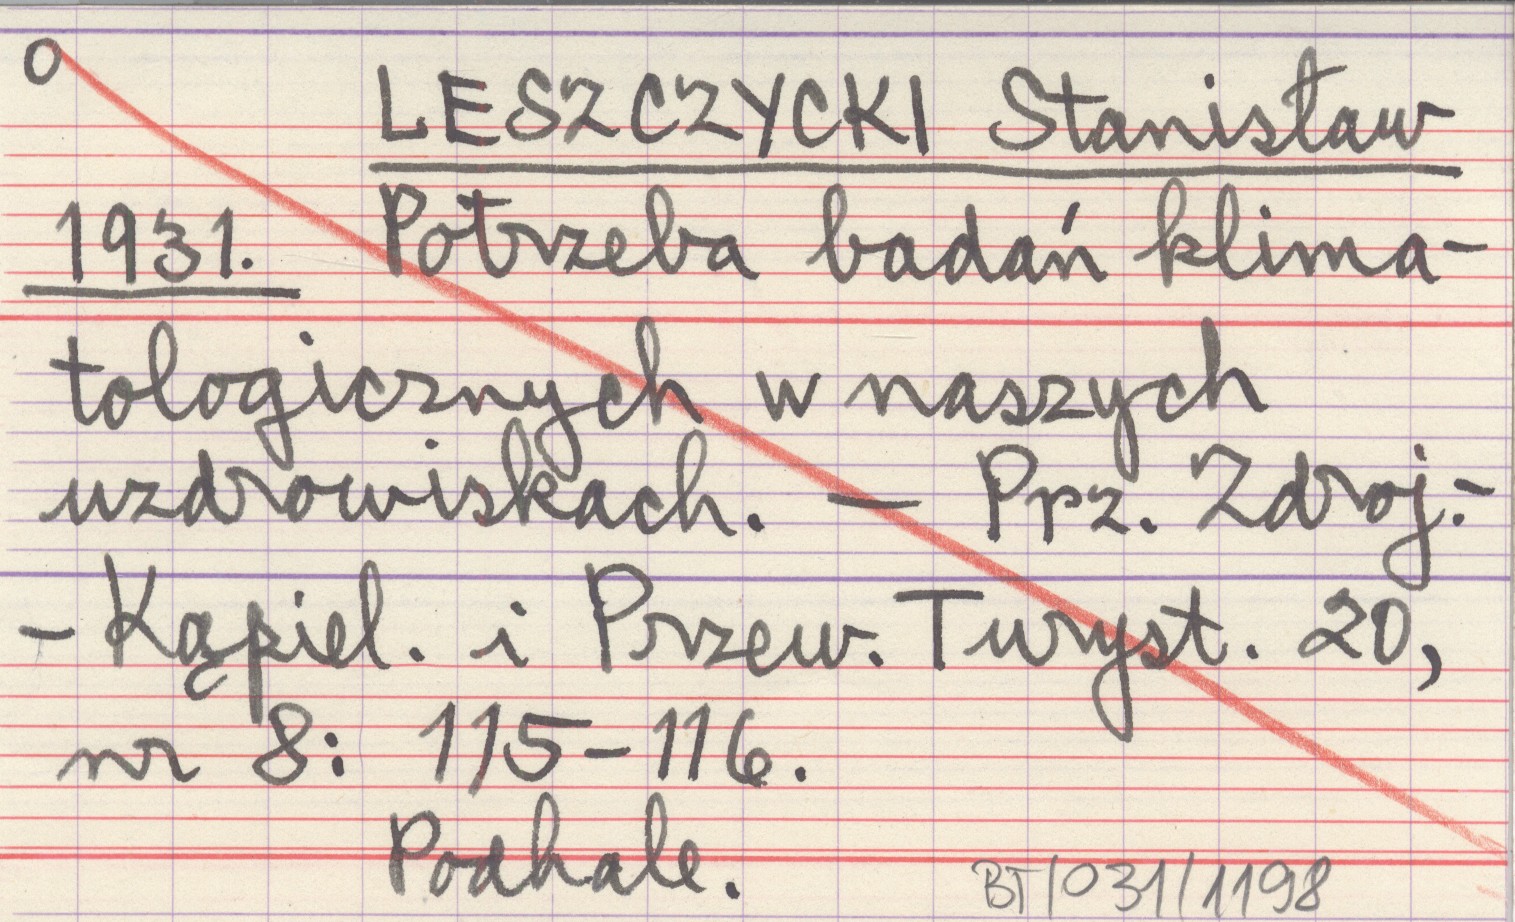 O
LESZCZYCKI Stanisław
1931. Potrzeba badań klima-
tologicznych w naszych
uzdrowiskach. — Prz. Zdroj.-
-Kąpiel. i Przew. Turyst. 20,
nr 8: 115-116.
Podhale.
BT/031/1198